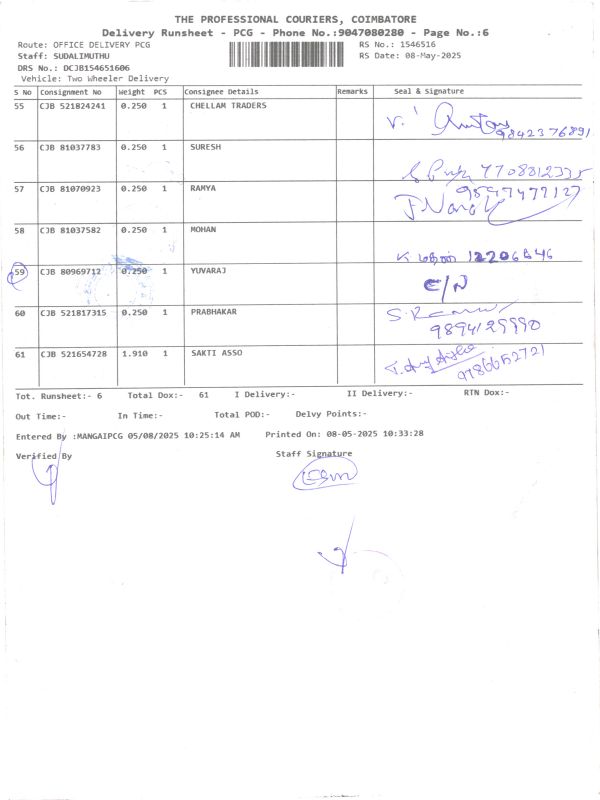 THE PROFESSIONAL COURIERS, COIMBATORE
Delivery Runsheet - PCG - Phone No.:9047080280 - Page No.:6
Route: OFFICE DELIVERY PCG RS No.: 1546516
Staff: SUDALIMUTHU RS Date: 08-May-2025
DRS No.: DCJB154651606
Vehicle: Two Wheeler Delivery
S No Consignment No Weight PCS Consignee Details Remarks Seal & Signature
55 CJB 521824241 0.250 1 CHELLAM TRADERS
9842376891
56 CJB 81037783 0.250 1 SURESH
7708812335
57 CJB 81070923 0.250 1 RAMYA
58 CJB 81037582 0.250 1 MOHAN
59 CJB 80969712 0.250 1 YUVARAJ
60 CJB 521817315 0.250 1 PRABHAKAR
9894129990
61 CJB 521654728 1.910 1 SAKTI ASSO
9786652721
Tot. Runsheet:- 6 Total Dox:- 61 I Delivery:- II Delivery:- RTN Dox:-
Out Time:- In Time:- Total POD:- Delvy Points:-
Entered By :MANGAIPCG 05/08/2025 10:25:14 AM Printed On: 08-05-2025 10:33:28
Verified By Staff Signature